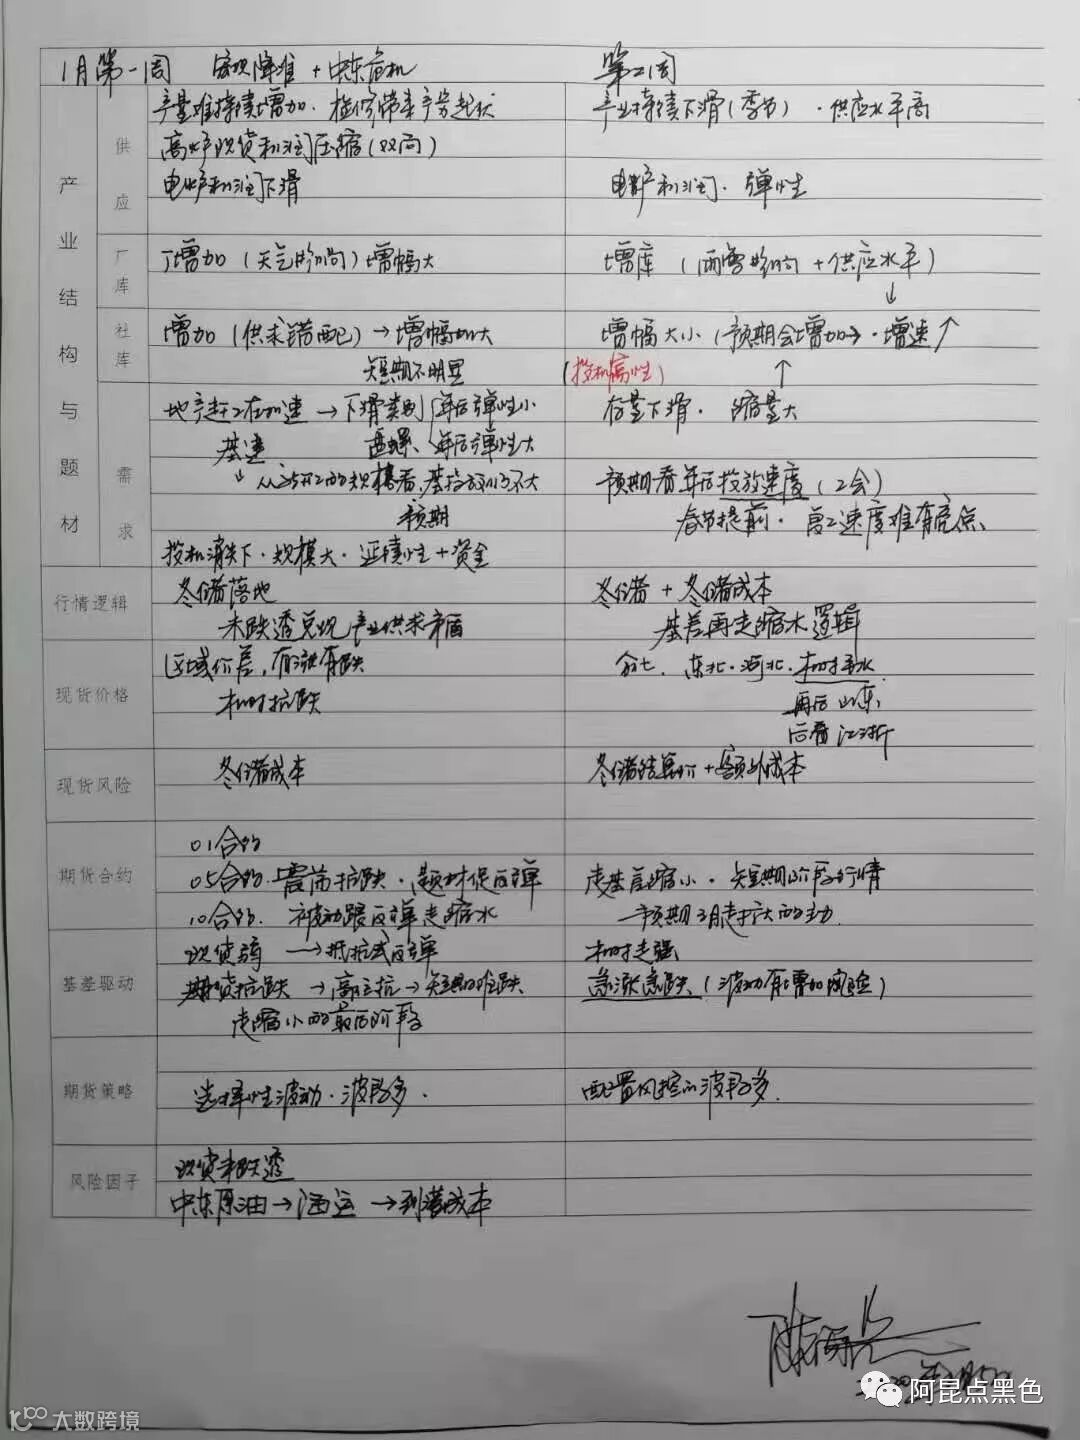 1月第一周 宏观降准+中东危机 第二周
产业结构与题材
供应
产量难持续增加.检修带来产劳起伏 产业持续下滑(季节).供应水平高
高炉现货利润压缩(双向)
电炉利润下滑 电炉利润.弹性
厂库
增加(天气影响)增幅大 增库(雨雪影响+供应水平)
↓
社库
增加(供求错配)→增幅加大 增幅大小(预期会增加→.增速↑
短期不明显 (投机属性) ↑
需求
地产赶工在加速→下滑类别 年后弹性小 存量下滑.缩量大
基建 年后弹性大
↓从开工的规模看,基 不大 预期看年后投放速度(2会)
预期 春节提前.复工速度难有亮点
投机消失下.规模大.延续性+资金
行情逻辑
冬储落地 冬储+冬储成本
未跌透兑现产业供求矛盾 基差再走缩水逻辑
现货价格
区域价差,有涨有跌 东北.河北.
抗跌 再后山东
后看江浙
现货风险
冬储成本 冬储结算价+额外成本
期货合约
01合约
05合约.震荡抗跌.题材促反弹 走基差缩小.短期阶段行情
10合约.被动跟反弹走缩水 预期3月走扩大的主动.
基差驱动
现货弱→抵抗式反弹 走强
期货抗跌→高位抗→短期难跌 急涨急跌(波动有增加风险)
走缩小的最后阶段
期货策略
选择性波动.波段多. 配置风控的波段多.
风险因子
现货未跌透
中东原油→海运→到港成本
阿昆点黑色
大数跨境